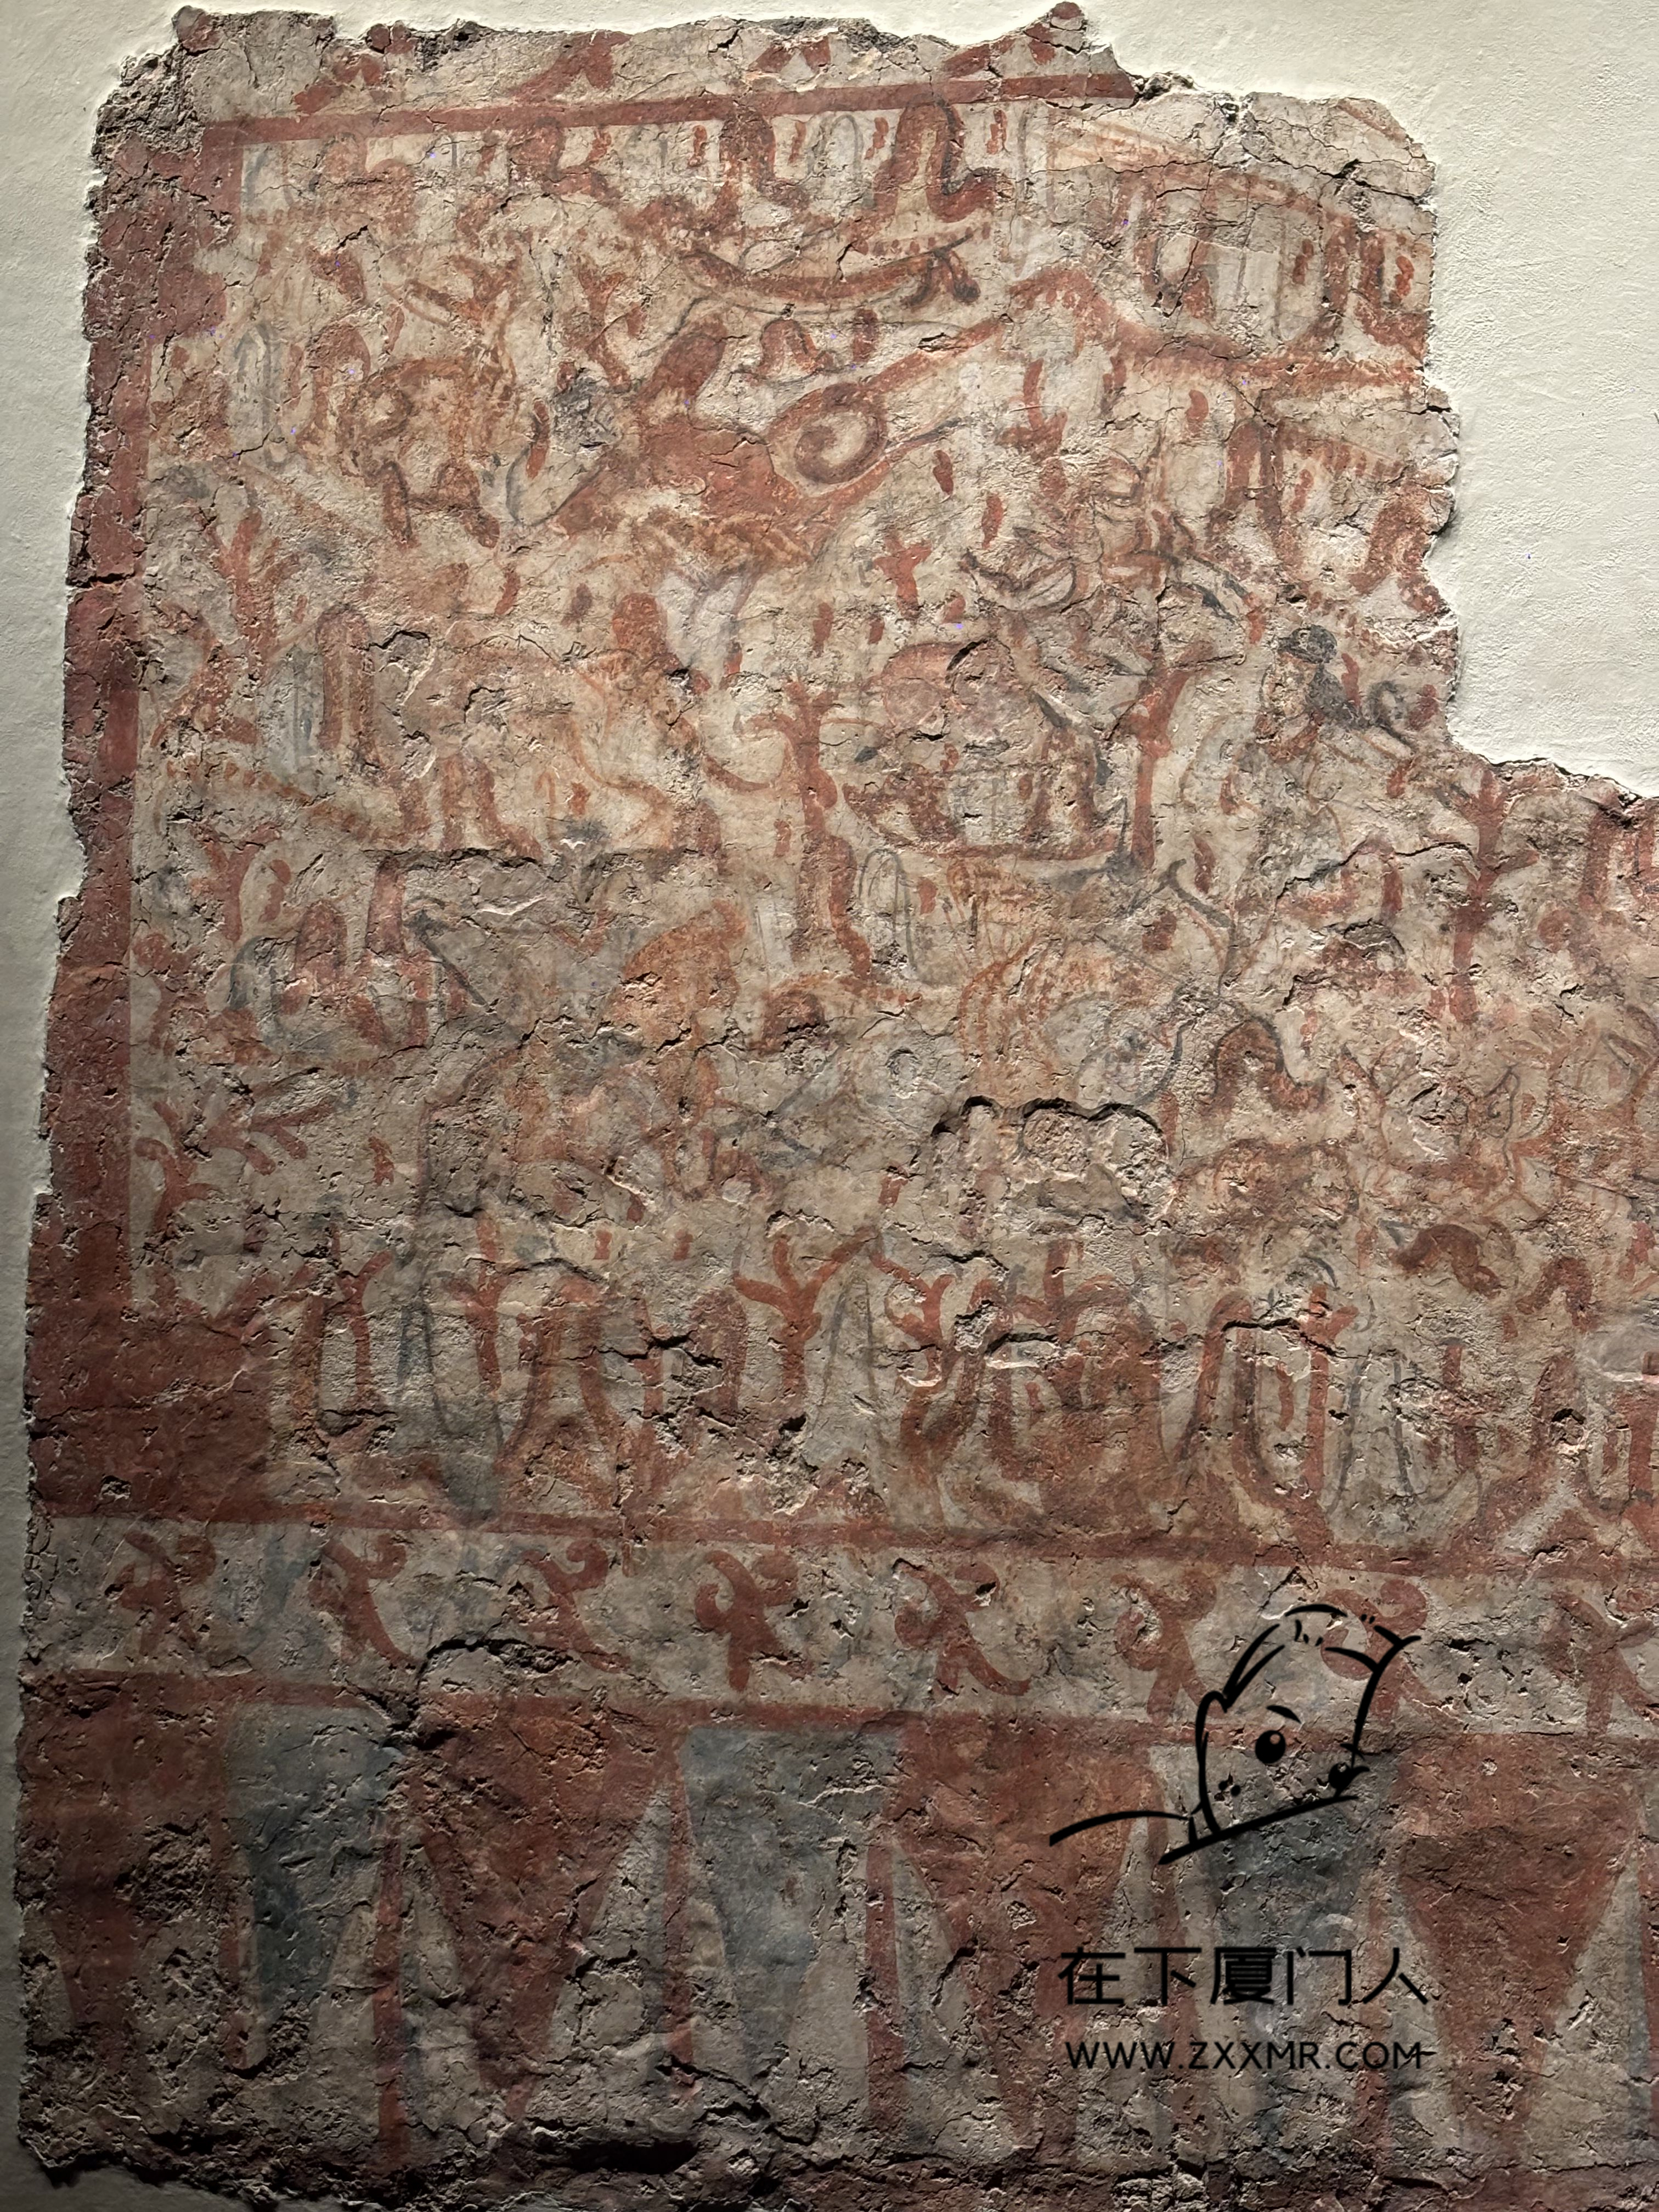 在下厦门人
WWW.ZXXMR.COM